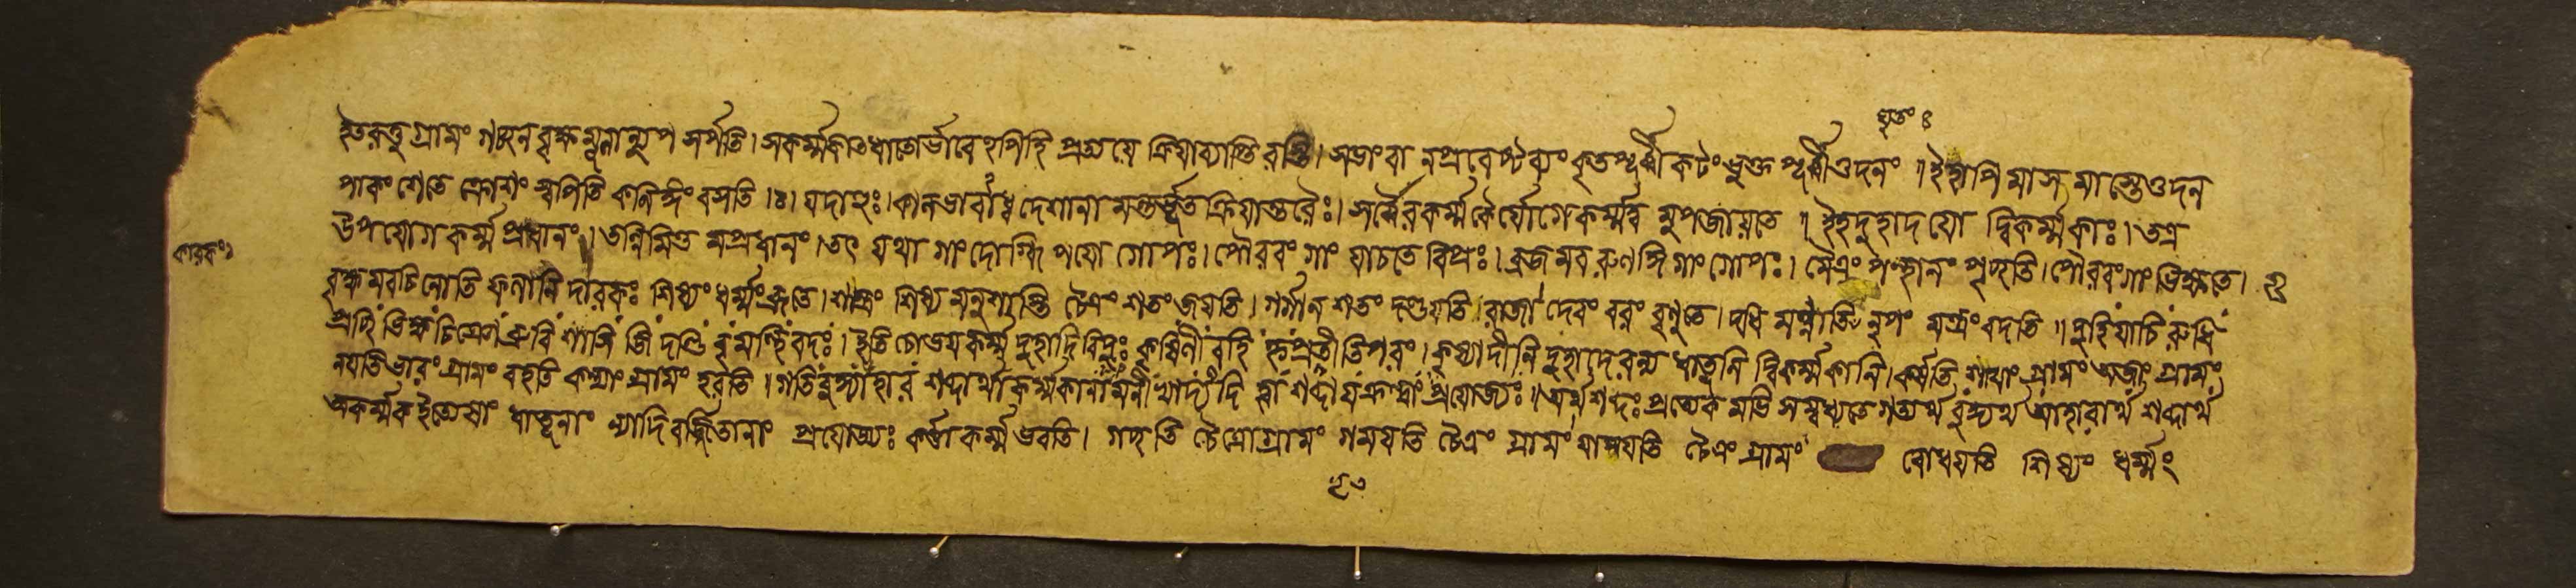 घृतं ४
ইতরত্তু গ্রামং গচ্ছন বৃক্ষমূলান্যুপ সর্পতি। সকর্ম্মকাণ্ডধাতোর্ভাবেঽপিহি প্রত্যয়ে ক্রিয়াব্যাপ্তিরস্তি। সভাংবা নপ্রবেষ্টব্যং কৃতপূর্ব্বী কটং ভুক্ত পূর্ব্বীওদনং ॥ ইহাপি মাস মাস্তেওদন
পাকং শেতে ক্রোশং স্বপিতি কলিঙ্গং বসতি ।৪। যদাহুঃ। কালভাবাধ্ব দেশানা মন্তর্ভূত ক্রিয়ান্তরৈঃ। সর্ব্বৈরকর্ম্মকৈর্যোগে কর্ম্মত্ব মুপজায়তে ॥ ইহদুহাদয়ো দ্বিকর্ম্মকাঃ। তত্র
উপযোগ কর্ম্ম প্রধানং। তন্নিমিত্ত মপ্রধানং। তৎ যথা গাং দোগ্ধি পয়ো গোপঃ। পৌরবং গাং যাচতে বিপ্রঃ। ব্রজমব রুণদ্ধি গাং গোপঃ। চৈত্রং পন্থানং পৃচ্ছতি। পৌরবংগাং ভিক্ষতে।
কারকং২
বৃক্ষ মবচিনোতি ফলানি দারকঃ শিষ্যং ধর্ম্মং ব্রূতে। শাস্ত্রং শিষ্য মনুশাস্তি চৈত্রং শতং জয়তি। গর্গান শতং দণ্ডয়তি। রাজা দেবং বরং বৃণুতে। দধি মথ্নাতি নৃপং মন্ত্রং বদতি ॥ দুহিযাচি রুধি
প্রচ্ছি ভিক্ষি চিঞো ব্রুবি শাসি জি দণ্ডি বৃ মন্থি বদঃ। ইতি চোভয়কর্ম্ম দুহাদি বিদুঃ কৃষির্নী বহি হৃ প্রভৃতিপরং। কৃষ্যাদীনি দুহাদেরন্য ধাতূনি দ্বিকর্ম্মকানি। কর্ষতি শাখাং গ্রামং অজাং গ্রামং
নয়তি ভারং গ্রামং বহতি কন্যাং গ্রামং হরতি। গতিবুদ্ধ্যাহার শব্দার্থাকর্ম্মকানামনীখাদ্যদি হ্বা শব্দায়ক্রন্দাং প্রযোজ্যঃ ॥ অর্থশব্দঃ প্রত্যেক মভি সম্বধ্যতে গত্যর্থ বুদ্ধ্যর্থ আহারার্থ শব্দার্থ
অকর্ম্মক ইত্যেষাং ধাতূনাং ন্যাদি বর্জ্জিতানাং প্রযোজ্যঃ কর্ত্তা কর্ম্ম ভবতি। গচ্ছতি চৈত্রো গ্রামং গময়তি চৈত্রং গ্রামং যাপয়তি চৈত্রং গ্রামং বোধয়তি শিষ্যং ধর্ম্মং